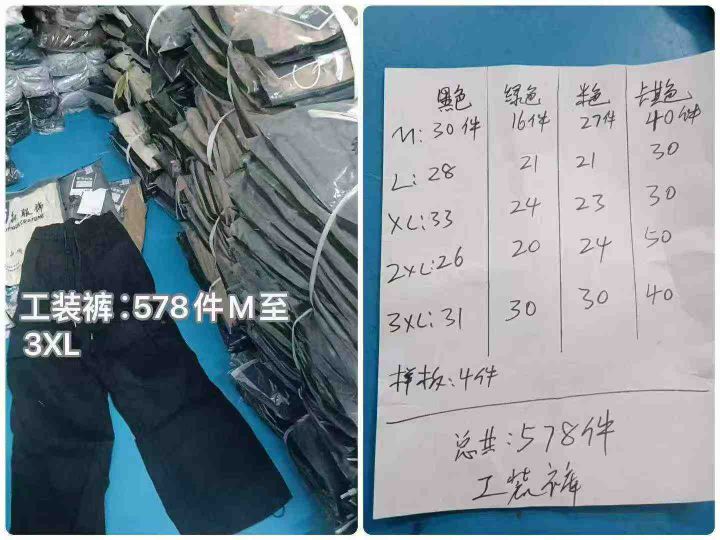 工装裤：578件M至
3XL
服饰
黑色 绿色 米色 卡其色
M: 30件 16件 27件 40件
L: 28 21 21 30
XL: 33 24 23 30
2XL: 26 20 24 50
3XL: 31 30 30 40
样板: 4件
总共: 578件
工装裤